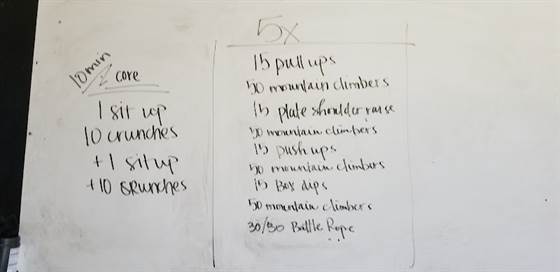 10 min
core
1 sit up
10 crunches
+1 sit up
+10 crunches
5x
15 pull ups
50 mountain climbers
15 plate shoulder raise
50 mountain climbers
15 push ups
50 mountain climbers
15 Box dips
50 mountain climbers
30/30 Battle Rope